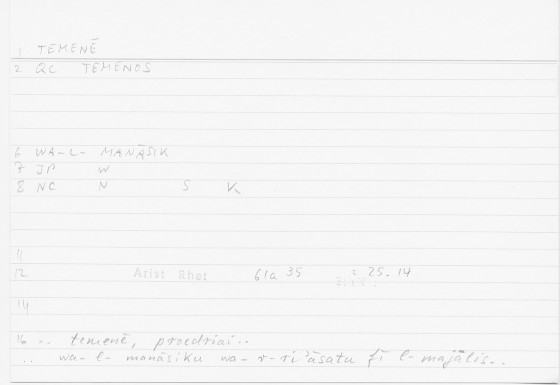 1 TEMENĒ
2 QC TEMENOS
6 WA-L- MANĀSIK
7 JP W
8 NC N S K
11
12 Arist Rhet 61a 35 : 25.14
14
16 .. temenē, proedriai..
.. wa-l-manāsiku wa-r-ri'āsatu fī l-majālis..